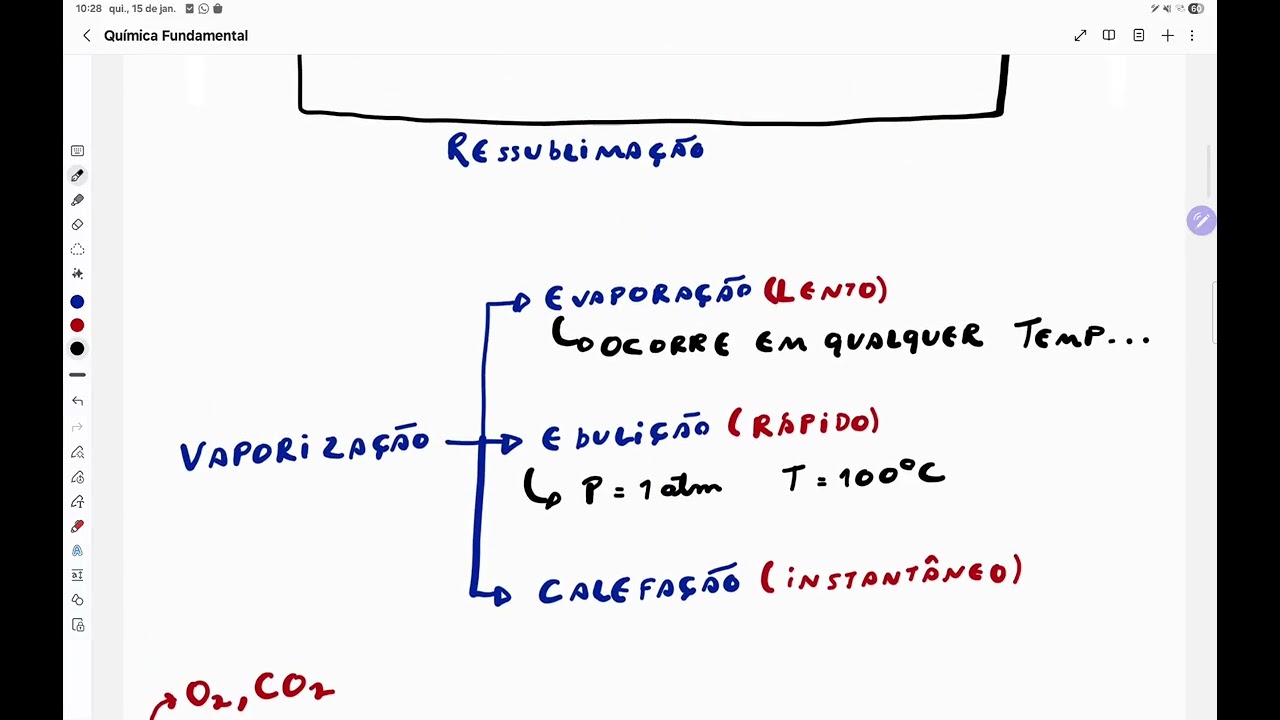 10:28 qui., 15 de jan.
60
Química Fundamental
RESSUBLIMAÇÃO
EVAPORAÇÃO (LENTO)
OCORRE EM QUALQUER TEMP...
EBULIÇÃO (RÁPIDO)
VAPORIZAÇÃO
P = 1 atm T = 100°C
CALEFAÇÃO (INSTANTÂNEO)
O₂, CO₂